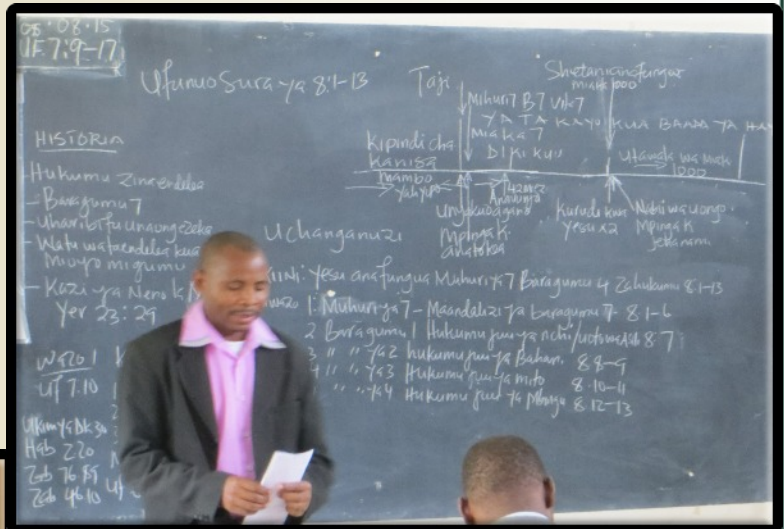 08·08·15
UF 7:9-17
Ufunuo Sura ya 8:1-13
Taji
miaka 1000
Mihuri 7 B7 Vit 7
YATAKAYOKUA BAADA YA HA
Miaka 7
DIKI KUU
Kipindi cha
kanisa
mambo
yaliyopo
utawala wa miak
1000
Unyakuo
Mpinga K
anatokea
Kurudi kwa
Yesu x2
Nabii wa uongo
Mpinga K
HISTORIA
- Hukumu Zinaendelea
- Baragumu 7
- Uharibifu unaongezeka
- Watu wataendelea kua
Mioyo migumu
- Kazi ya Neno la M
Yer 23:29
Uchanganuzi
Yesu anafungua Muhuri ya 7 Baragumu 4 Za hukumu 8:1-13
1: Muhuri ya 7 - Maandalizi ya baragumu 7- 8:1-6
2 Baragumu 1 Hukumu juu ya nchi 8:7
3 " " ya 2 hukumu juu ya Bahari 8:8-9
4 " " ya 3 Hukumu juu ya mito 8:10-11
" " ya 4 Hukumu juu ya 8:12-13
Wazo 1
Uf 7:10
Hab 2:20
Zab 46:10